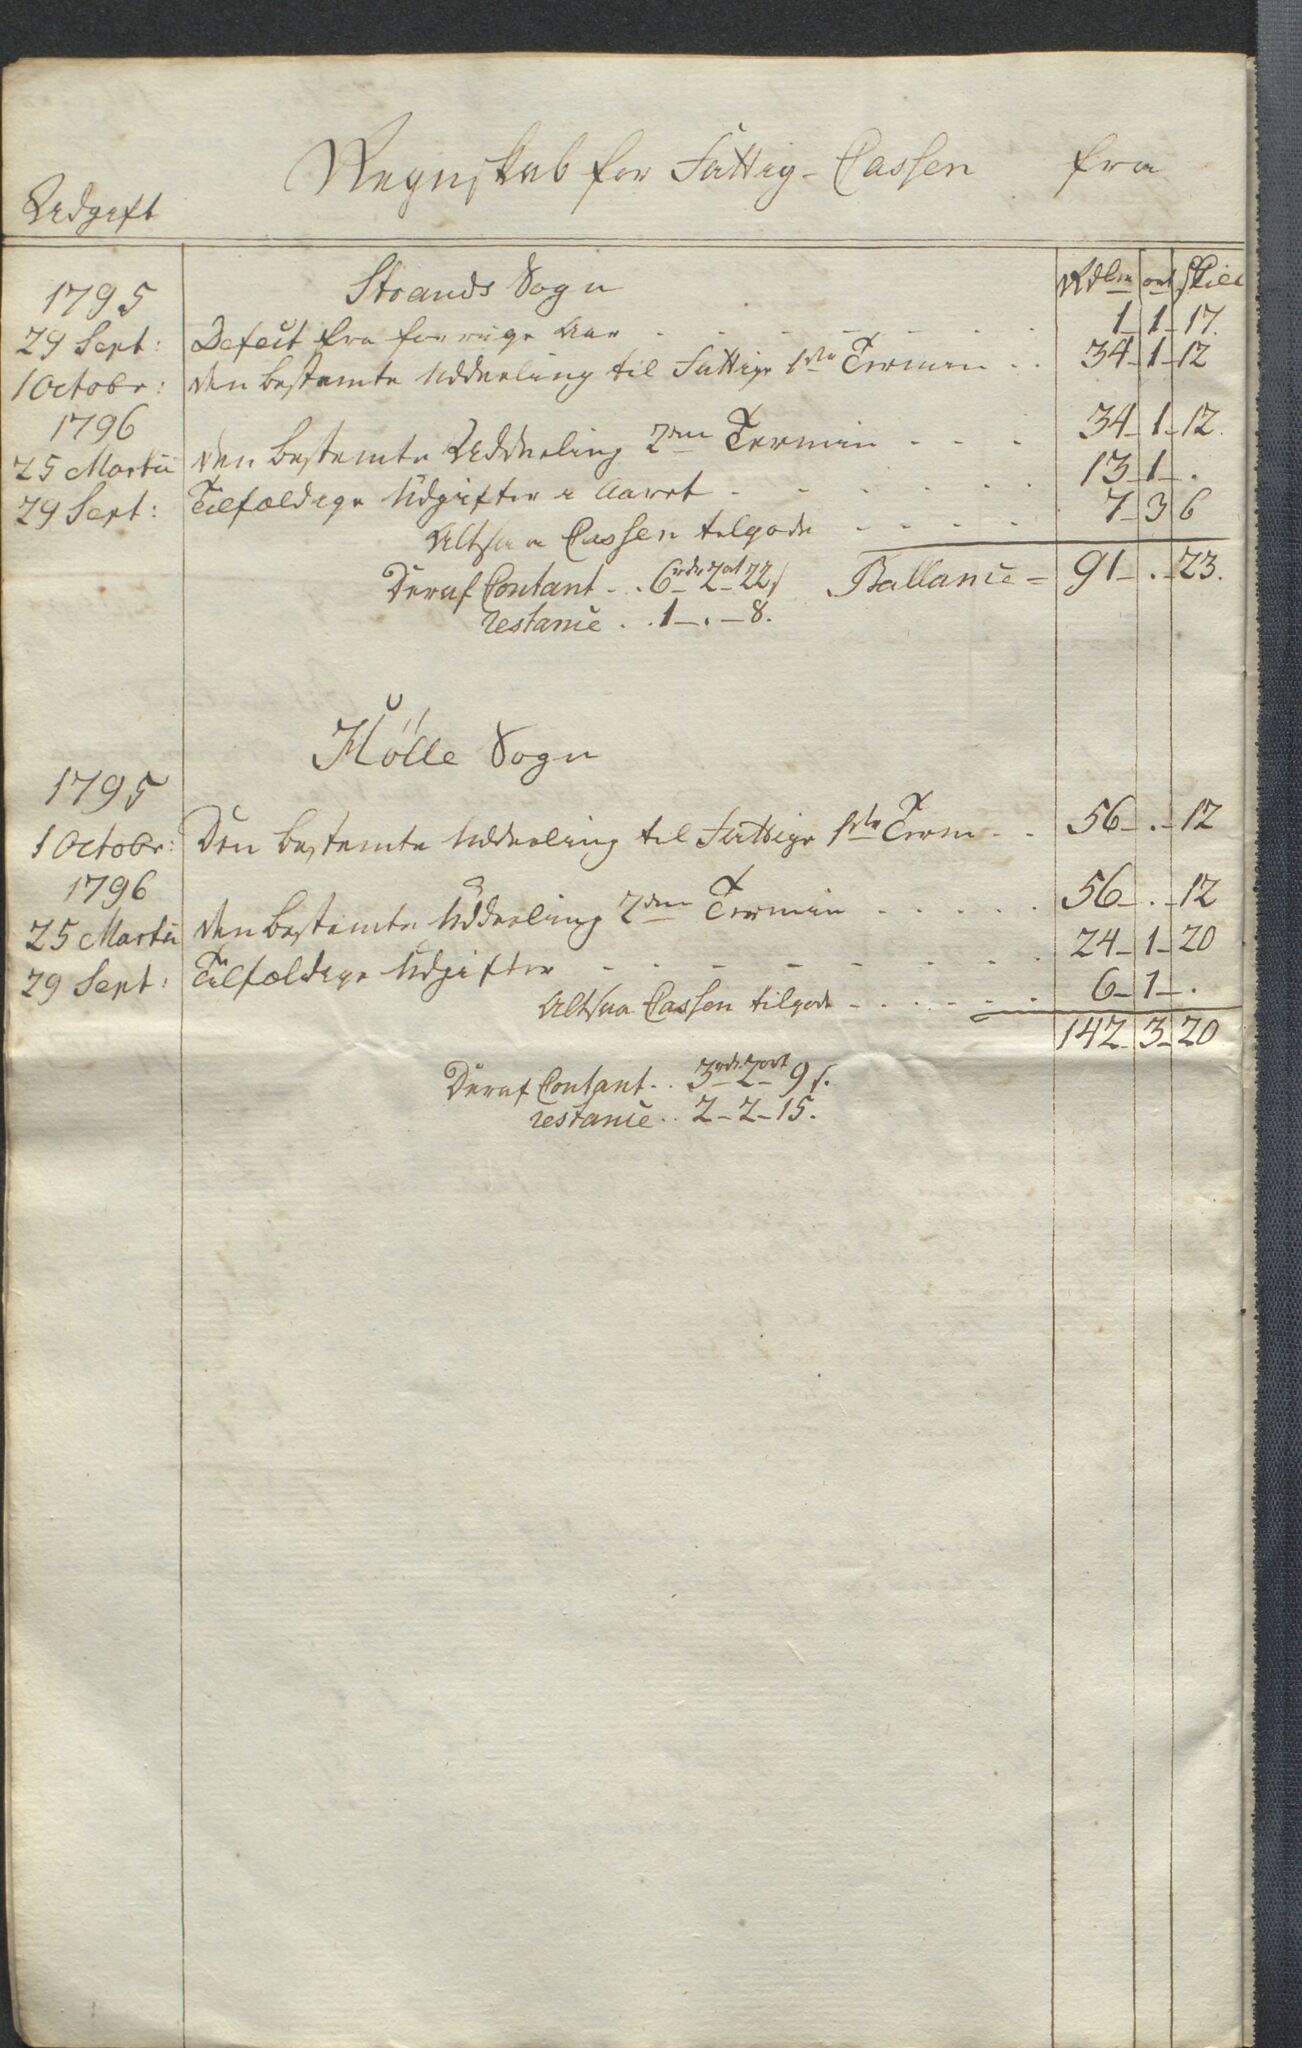 Regnskab for Fattig-Cassen fra
Udgift
Strands Sogn Rdlr ort skill
1795
29 Sept: Defect fra forrige Aar - - - - - - - 1 - 1 - 17.
1 Octobr: den bestemte Uddeeling til Fattige 1ste Termin . . 34 - 1 - 12
1796
25 Martii den bestemte Uddeeling 2den Termin - - - . 34 - 1 - 12.
29 Sept: Tilfældige Udgifter i Aaret - - - - - - - 13 - 1 - .
Altsaa Cassen tilgode - - - - . 7 - 3 6
Deraf Contant - . 6rdr 2ort 22s Ballance = 91 - . - 23.
restance . . 1 - . - 8.
Hölle Sogn
1795
1 Octobr: Den bestemte Uddeeling til Fattige 1ste Term - . 56 - . - 12
1796
25 Martii den bestemte Uddeeling 2den Termin - - - - . 56 - . - 12
29 Sept: Tilfældige Udgifter - - - - - - - - . 24 - 1 - 20
Altsaa Cassen tilgode - - - - - . 6 - 1 - .
142 - 3 - 20
Deraf Contant . . 3rdr 2ort 9s.
restance . . 2 - 2 - 15.